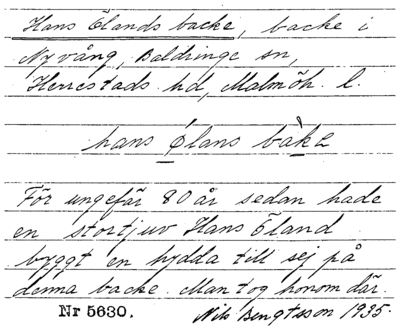 Hans Ölands backe, backe i
Nyvång, Baldringe sn,
Herrestads hd, Malmöh. l.
hans ölans bàkə
För ungefär 80 år sedan hade
en stortjuv Hans Öland
byggt en hydda till sej på
denna backe. Man tog honom där.
Nr 5630. Nils Bengtsson 1935.